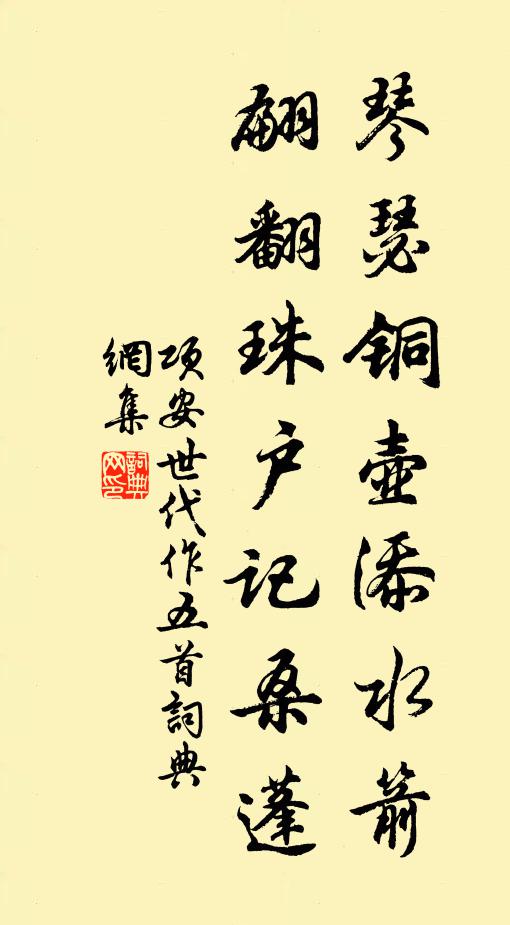 琴瑟铜壶添水箭
翩翻珠户记桑蓬
项安世代作五首詞典
網集
詞典網印